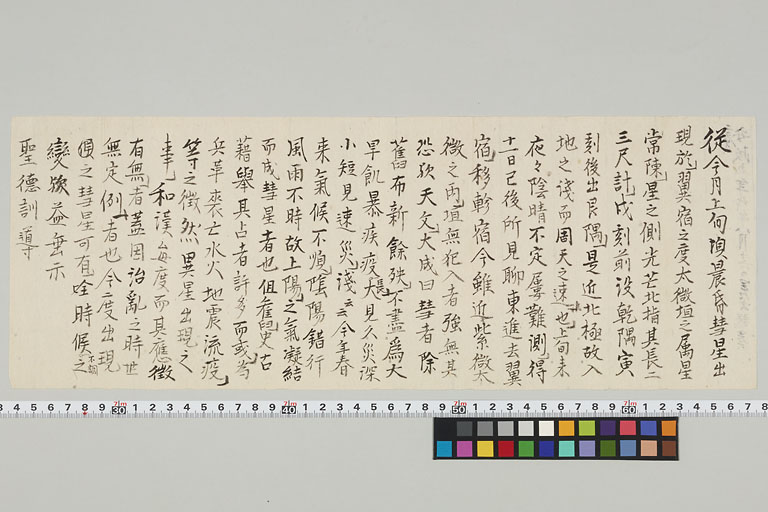 従今月上旬頃晨昏彗星出
現於翼宿之度太微垣之属星
常陳星之側光芒北指其長二
三尺計戌刻前没乾隅寅
刻後出艮隅是近北極故入
地之浅而周天之速也上旬来
夜々陰晴不定屡難測得
十一日已後所見聊東進去翼
宿移軫宿今雖近紫微太
微之両垣無犯入者強無其
恐歟天文大成曰彗者除
舊布新餘殃不盡為大
旱飢暴疾疫長見久災深
小短見速災浅云云今年春
来氣候不順陰陽錯行
風雨不時故上陽之氣凝結
而成彗星者也但舊史古
籍舉其占者許多而或為
兵革喪亡水火地震流疫
等之徴然異星出現之
事和漢毎度而其應徴
有無者蓋因治亂之時世
無定例者也今度出現
之彗星可有唫時候之不調
變歟益無示
聖德訓導